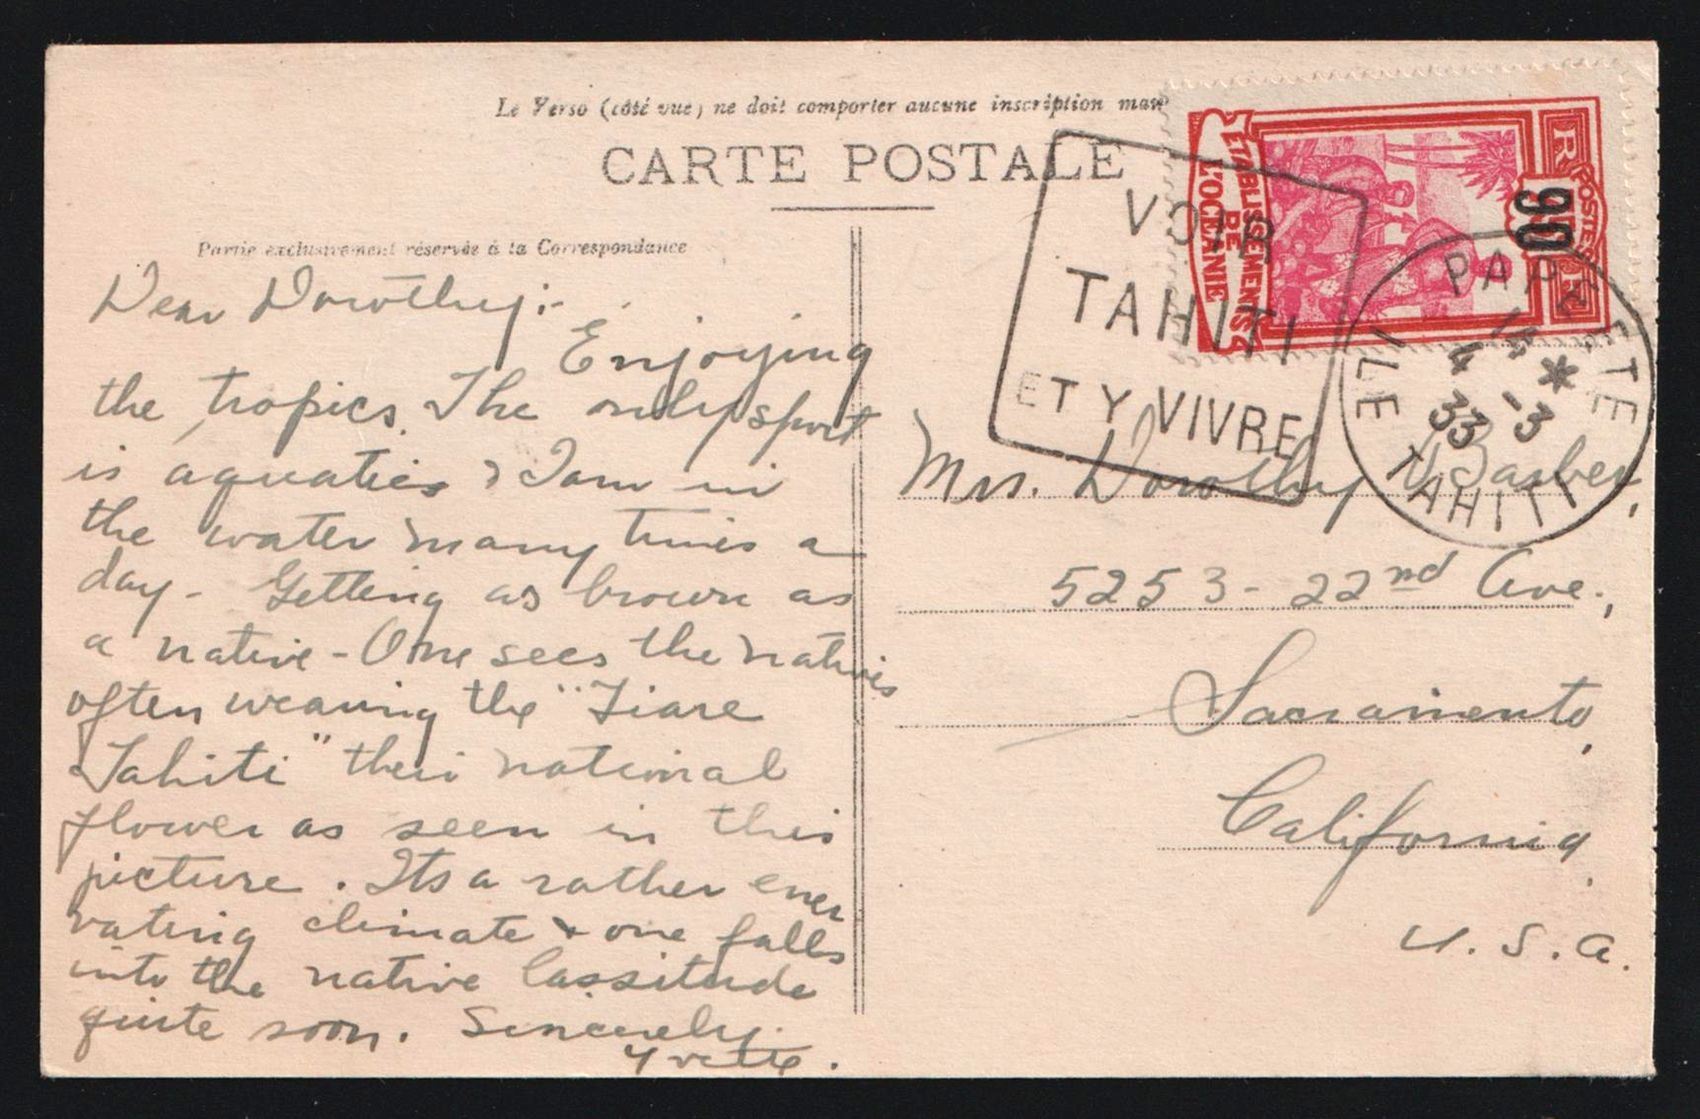 Le Verso (côté vue) ne doit comporter aucune inscription
CARTE POSTALE
Partie exclusivement réservée à la Correspondance
Dear Dorothy:-
Enjoying
the tropics. The only sport
is aquatics & I am in
the water many times a
day - Getting as brown as
a native - One sees the natives
often wearing the "Tiare
Tahiti" their national
flower as seen in this
picture. Its a rather ener
vating climate & one falls
into the native lassitude
quite soon. Sincerely
Yvette.
VOIR
TAHITI
ET Y VIVRE
ETABLISSEMENTS
DE
L'OCÉANIE
POSTES
R F
90
PAPEETE
14 *
4 -3
33
ILE TAHITI
Mrs. Dorothy Barber,
5253 - 22nd Ave.,
Sacramento,
California,
U.S.A.